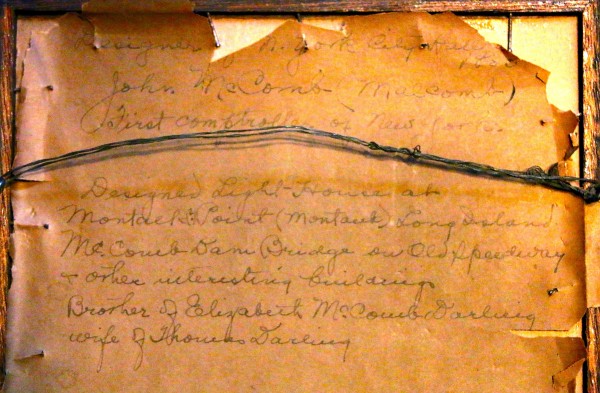 Designer of N. York City Hall
John McComb (Malcomb)
(First comptroller of New York.
Designed Light-House at
Montack Point (Montauk) Long Island
Mc.Comb Dam Bridge on Old Speedway
& other interesting buildings
Brother of Elizabeth McComb Darling
wife of Thomas Darling